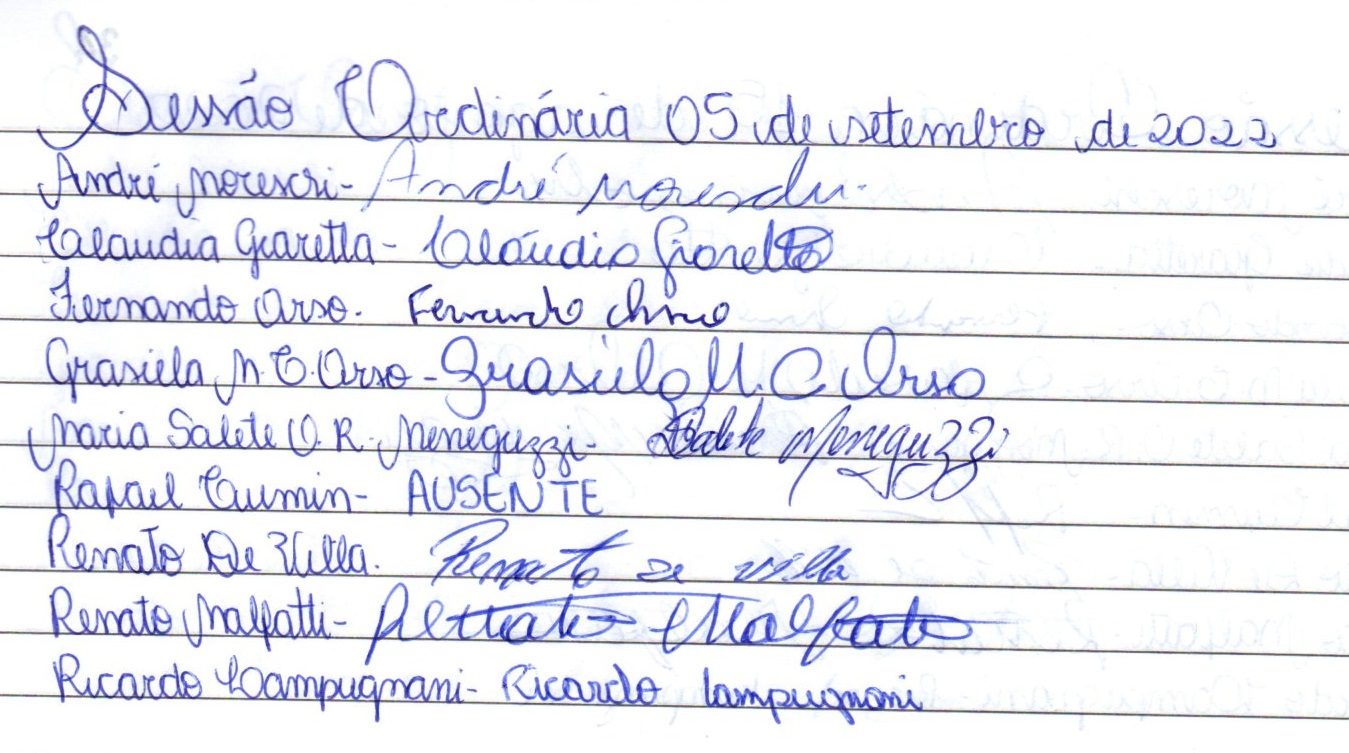 Sessão Ordinária 05 de setembro de 2022
André Morescri - André Moreschi.
Claudia Giaretta - Claudio Giaretta
Fernando Orso. Fernando Orso
Grasiela M. C. Orso - Grasiela M. C Orso
Maria Salete O. R. Meneguzzi - Salete Meneguzzi
Rafael Cumin - AUSENTE
Renato De Villa. Renato de villa
Renato Malfatti - Renato Malfatti
Ricardo Campugnani - Ricardo Campugnani